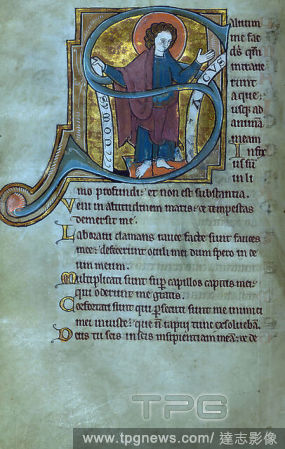 aluum
me fac
ds qm
intraue
runt
aque
usq; ad
animā
meam
Infix
us su
in li
mo profundi: et non est substantia.
Veni in altitudinem maris: et tempestas
demersit me.
Laboraui clamans rauce facte sunt fauces
mee: defecerunt oculi mei dum spero in de
um meum.
Multiplicati sunt sup capillos capitis mei:
qui oderunt me gratis.
Cōfortati sunt qui psecuti sunt me inimici
mei iniuste: que nō rapui tunc exsoluebā.
Deus tu scis insipientiam meā: et de
TPG
www.tpgnews.com/ 達志影像